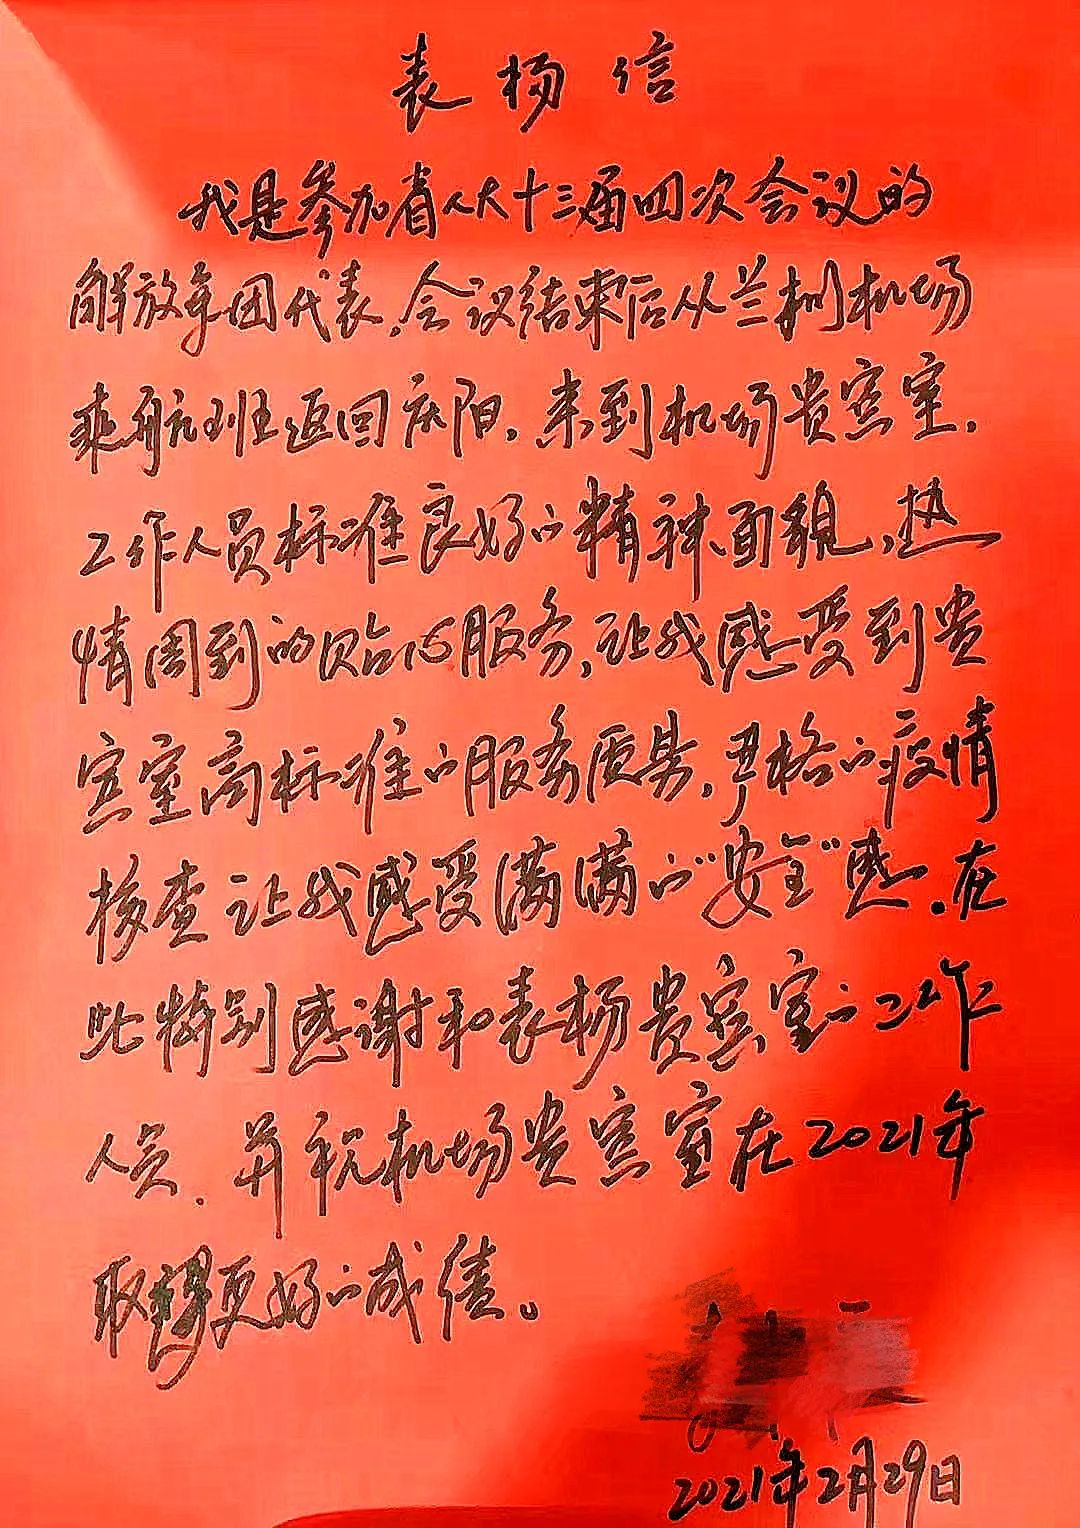 表扬信
我是参加省人大十三届四次会议的
解放军团代表,会议结束后从兰州机场
乘航班返回庆阳,来到机场贵宾室.
工作人员标准良好的精神面貌,热
情周到的贴心服务,让我感受到贵
宾室高标准的服务质量,严格的疫情
核查让我感受满满的“安全”感.在
此特别感谢和表扬贵宾室的工作
人员.并祝机场贵宾室在2021年
取得更好的成绩。
2021年2月29日